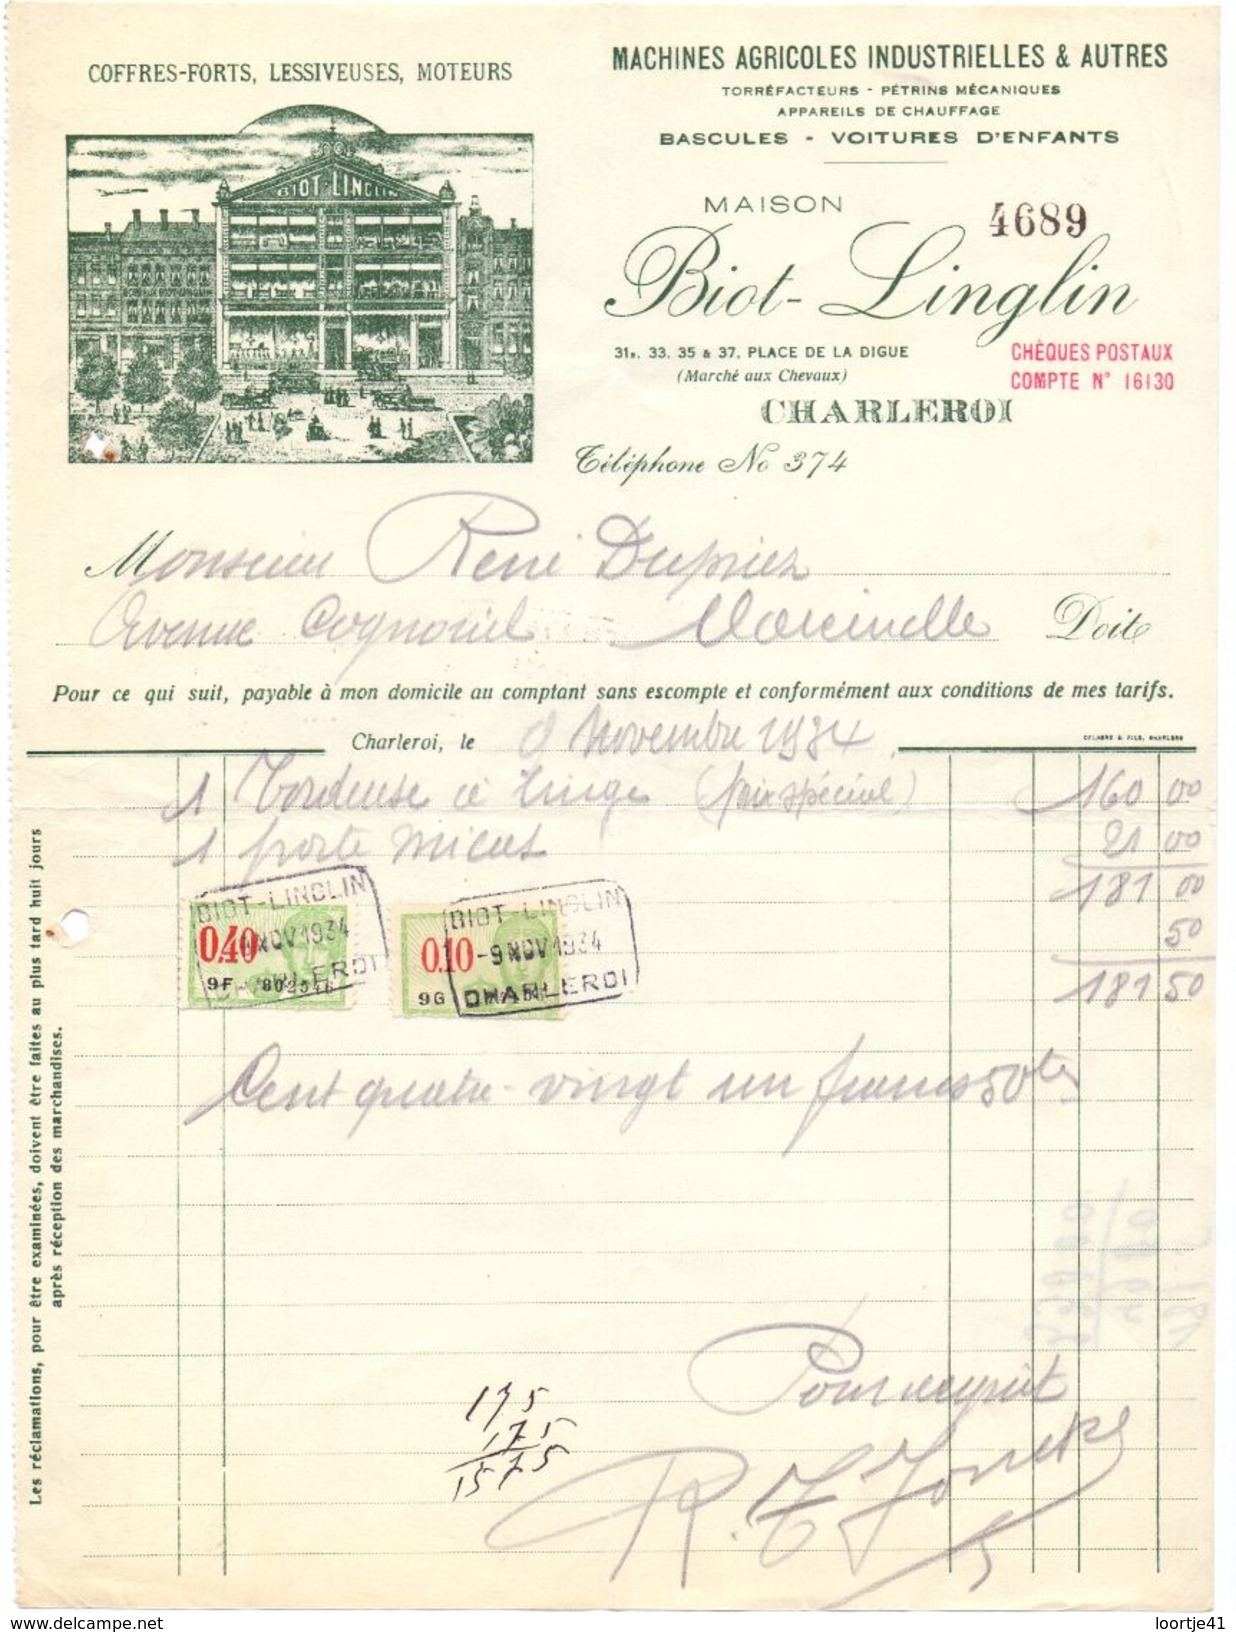 COFFRES-FORTS, LESSIVEUSES, MOTEURS
BIOT-LINGLIN
MACHINES AGRICOLES INDUSTRIELLES & AUTRES
TORRÉFACTEURS - PÉTRINS MÉCANIQUES
APPAREILS DE CHAUFFAGE
BASCULES - VOITURES D'ENFANTS
MAISON
4689
Biot-Linglin
31B, 33, 35 & 37, PLACE DE LA DIGUE
(Marché aux Chevaux)
CHÈQUES POSTAUX
COMPTE N° 16130
CHARLEROI
Téléphone No 374
Monsieur René Dupriez
Avenue Marcinelle Doit
Pour ce qui suit, payable à mon domicile au comptant sans escompte et conformément aux conditions de mes tarifs.
Charleroi, le 9 Novembre 1934
DELABRE & FILS, CHARLEROI
1 Tordeuse à linge (prix spécial) 160 00
1 porte 21 00
181 00
50
181 50
BIOT-LINGLIN
NOV 1934
CHARLEROI
0.40
9F
BIOT-LINGLIN
-9 NOV 1934
CHARLEROI
0.10
9G
Cent quatre-vingt un francs 50 cts
Pour acquit
175
175
1575
Les réclamations, pour être examinées, doivent être faites au plus tard huit jours
après réception des marchandises.
loortje41